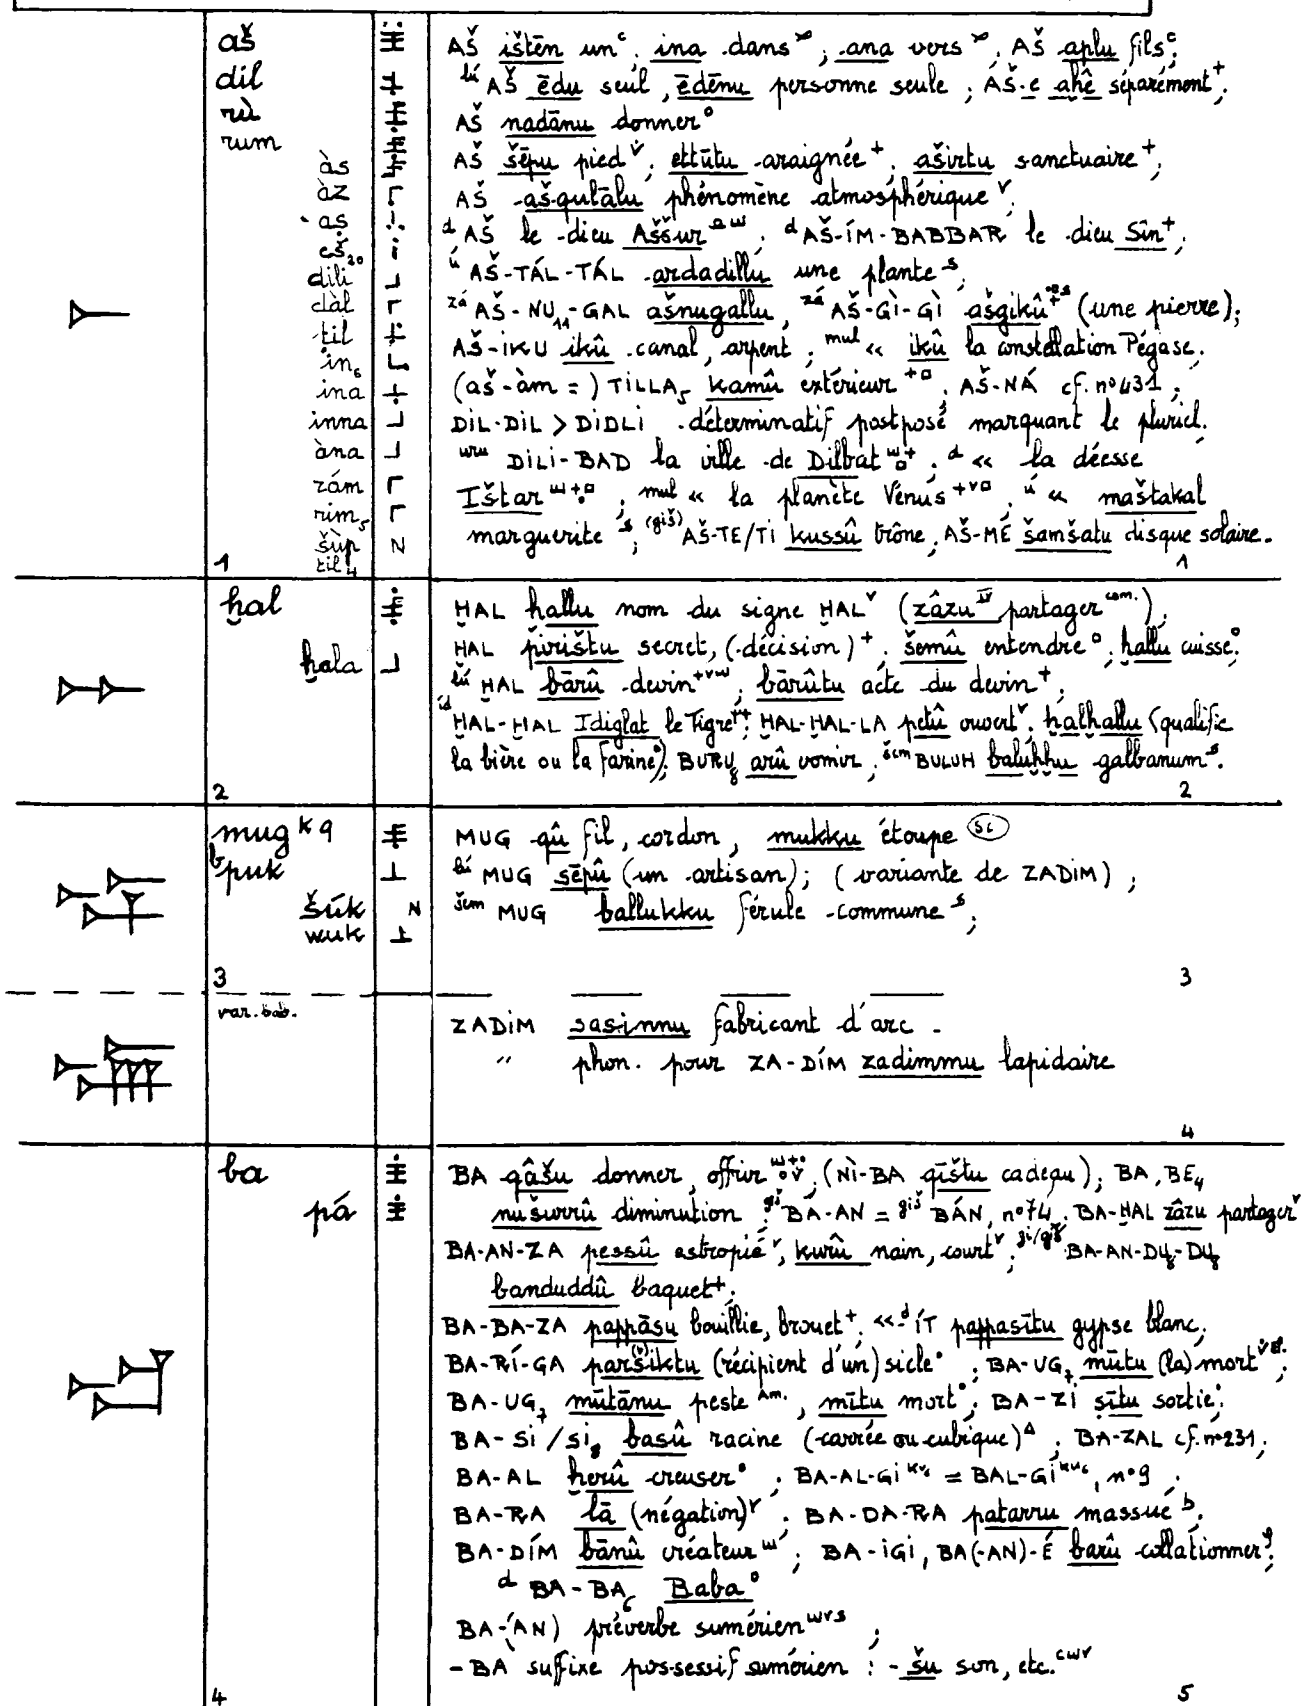 aš
dil
rù
rum
às
àz
as
eš₂₀
dili
dàl
til
in₆
ina
inna
àna
rám
rim₅
šùp
til₄
1
AŠ ištēn unᶜ, ina dans, ana vers, AŠ aplu filsᶜ;
lú AŠ ēdu seul, ēdēnu personne seule ; AŠ-e ahê séparément⁺;
AŠ nadānu donner°
AŠ šēpu pied ; ettūtu araignée⁺ ; aširtu sanctuaire⁺;
AŠ ašqulālu phénomène atmosphériqueᵛ;
ᵈ AŠ le dieu Aššur ; ᵈ AŠ-ÍM-BABBAR le dieu Sîn⁺;
ú AŠ-TÁL-TÁL ardadillu une planteˢ;
zá AŠ-NU₁₁-GAL ašnugallu, zá AŠ-GÌ-GÌ ašgikû (une pierre);
AŠ-IKU ikû canal, arpent ; mul « ikû la constellation Pégase.
(aš-àm =) TILLA₅ kamû extérieur⁺; AŠ-NÁ cf. n°431 ;
DIL-DIL > DIDLI déterminatif postposé marquant le pluriel.
uru DILI-BAD la ville de Dilbat ; ᵈ « la déesse
Ištar ; mul « la planète Vénus ; ú « maštakal
marguerite ˢ; (giš) AŠ-TE/TI kussû trône ; AŠ-ME šamšatu disque solaire.
1
ḫal
ḫala
2
ḪAL ḫallu nom du signe ḪALᵛ (zâzu partager com.),
ḪAL pirištu secret, (décision)⁺ ; šemû entendre° ; ḫallu cuisse°;
lú ḪAL bārû devin ; bārûtu acte du devin⁺;
íd ḪAL-ḪAL Idiglat le Tigre ; ḪAL-ḪAL-LA petû ouvertᵛ ; ḫalḫallu (qualifie
la bière ou la farine) ; BURU₈ arû vomir ; šem BULUḪ baluḫḫu galbanumˢ.
2
mug k q
b puk
šúk
wuk
3
MUG qû fil, cordon, mukku étoupe
lú MUG sēpû (un artisan); (variante de ZADIM) ;
šem MUG ballukku férule communeˢ;
3
var. bab.
ZADIM sasinnu fabricant d'arc -
" phon. pour ZA-DÍM zadimmu lapidaire
4
ba
pá
4
BA qâšu donner, offrir ; (NÌ-BA qīštu cadeau) ; BA, BE₄
nušurrû diminution ; giš BA-AN = giš BÁN, n°74 ; BA-ḪAL zâzu partagerᵛ
BA-AN-ZA pessû estropiéᵛ, kurû nain, courtᵛ ; gi/giš BA-AN-DU₈-DU₈
banduddû baquet⁺;
BA-BA-ZA pappāsu bouillie, brouet⁺ ; «-ᵈ ÍT pappasītu gypse blanc;
BA-RÍ-GA paršiktu (récipient d'un) sicle° ; BA-UG₇ mūtu (la) mort ;
BA-UG₇ mūtānu peste Am. , mītu mort° ; BA-ZI ṣītu sortie;
BA-SI/SI₈ basû racine (carrée ou cubique)ᐞ ; BA-ZAL cf. n°231 ;
BA-AL ḫerû creuser° ; BA-AL-GI ku₆ = BAL-GI ku₆, n°9 ;
BA-RA lā (négation)ᵛ ; BA-DA-RA patarru massue ᵇ;
BA-DÍM bānû créateur ʷ ; BA-IGI, BA(-AN)-É barû collationner;
ᵈ BA-BA₆ Baba°
BA-(AN) préverbe sumérien ʷᵛˢ ;
-BA suffixe possessif sumérien : -šu son, etc. ᶜʷᵛ
5